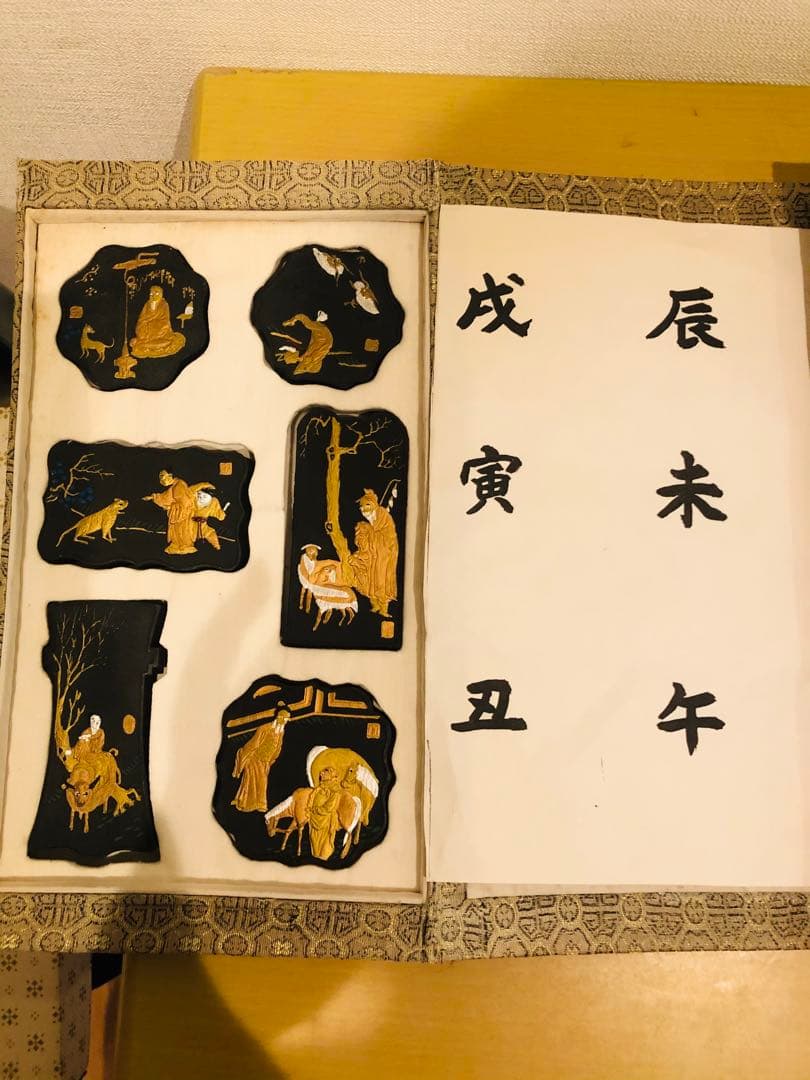 戌 辰
寅 未
丑 午